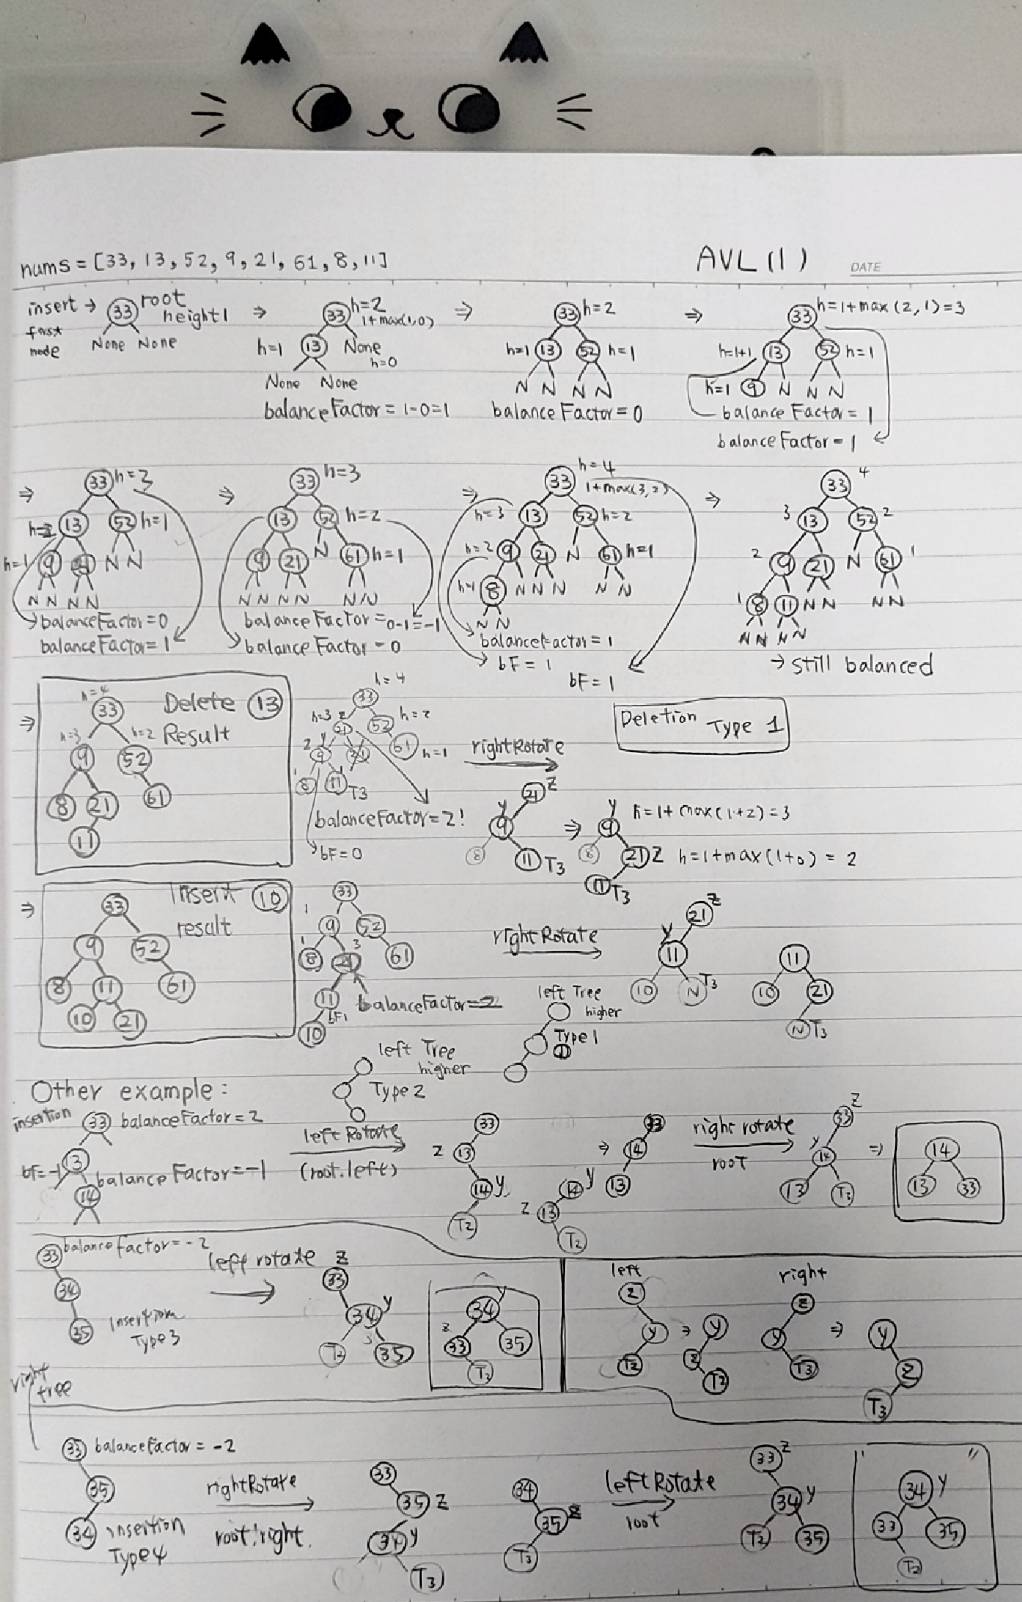 nums = [33, 13, 52, 9, 21, 61, 8, 11]
AVL (1)
DATE
insert → 33 root
first
node
height 1
None None
⇒ 33 h=2
1+max(1,0)
h=1 13 None
h=0
None None
balanceFactor = 1-0=1
⇒ 33 h=2
h=1 13 52 h=1
N N N N
balanceFactor = 0
⇒ 33 h=1+max(2,1)=3
h=1+1 13 52 h=1
h=1 9 N N N
balance Factor = 1
balance Factor = 1
⇒ 33 h=3
h=2 13 52 h=1
h=1 9 21 N N
N N N N
balanceFactor = 0
balanceFactor = 1
⇒ 33 h=3
13 52 h=2
9 21 N 61 h=1
N N N N N N
balance Factor = 0-1=-1
balance Factor = 0
⇒ 33 h=4
1+max(3,2)
h=3 13 52 h=2
h=2 9 21 N 61 h=1
h=1 8 N N N N N
N N
balancefactor = 1
bF = 1
bF = 1
⇒ 33 4
3 13 52 2
2 9 21 N 61 1
1 8 11 N N N N
N N N N
→ still balanced
⇒ h=4
33
Delete 13
Result
h=3 9 h=2 52
8 21 61
11
h=4
33
h=3 21 52 h=2
2 y 9 61 h=1
1 8 11 T3
balanceFactor = 2!
bF = 0
rightRotate
Deletion Type 1
21 z
y 9
8 11 T3
⇒ y 9 h=1+max(1+2)=3
8 21 z h=1+max(1+0) = 2
11 T3
⇒ 33
Insert 10
result
9 52
8 11 61
10 21
33
9 52
8 21 3 61
11 balanceFactor = 2
bF1
10
rightRotate
21 z
y 11
10 N T3
11
10 21
N T3
left Tree
higher
Type 1
left Tree
higher
Type 2
Other example:
insertion 33 balanceFactor = 2
bf=-1 13 balance Factor = -1
14
left Rotate
(root.left)
33
z 13
14 y
T2
14 y
z 13
T2
⇒ 33
14
13
right rotate
root
33 z
y 14
13 T3
⇒ 14
13 33
33 balance factor = -2
34
35
Insertion
Type 3
left rotate
z
33
34 y
T2 35
34 y
z 33 35
T2
left
z
y
T2
⇒ y
z
T2
right
z
y
T3
⇒ y
z
T3
right
tree
33 balancefactor = -2
35
34 insertion
Type 4
rightRotate
root.right
33
35 z
34 y
T3
34
35 z
T3
left Rotate
root
33 z
34 y
T2 35
34 y
33 35
T2